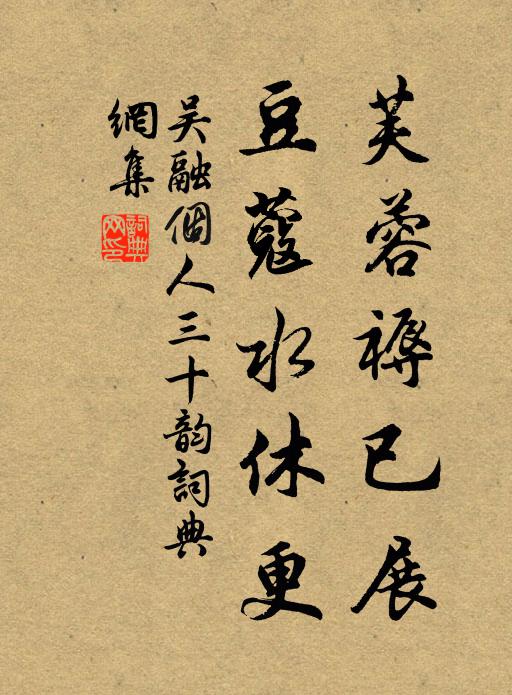 芙蓉褥已展
豆蔻水休更
吴融個人三十韵詞典
網集
詞典
网印